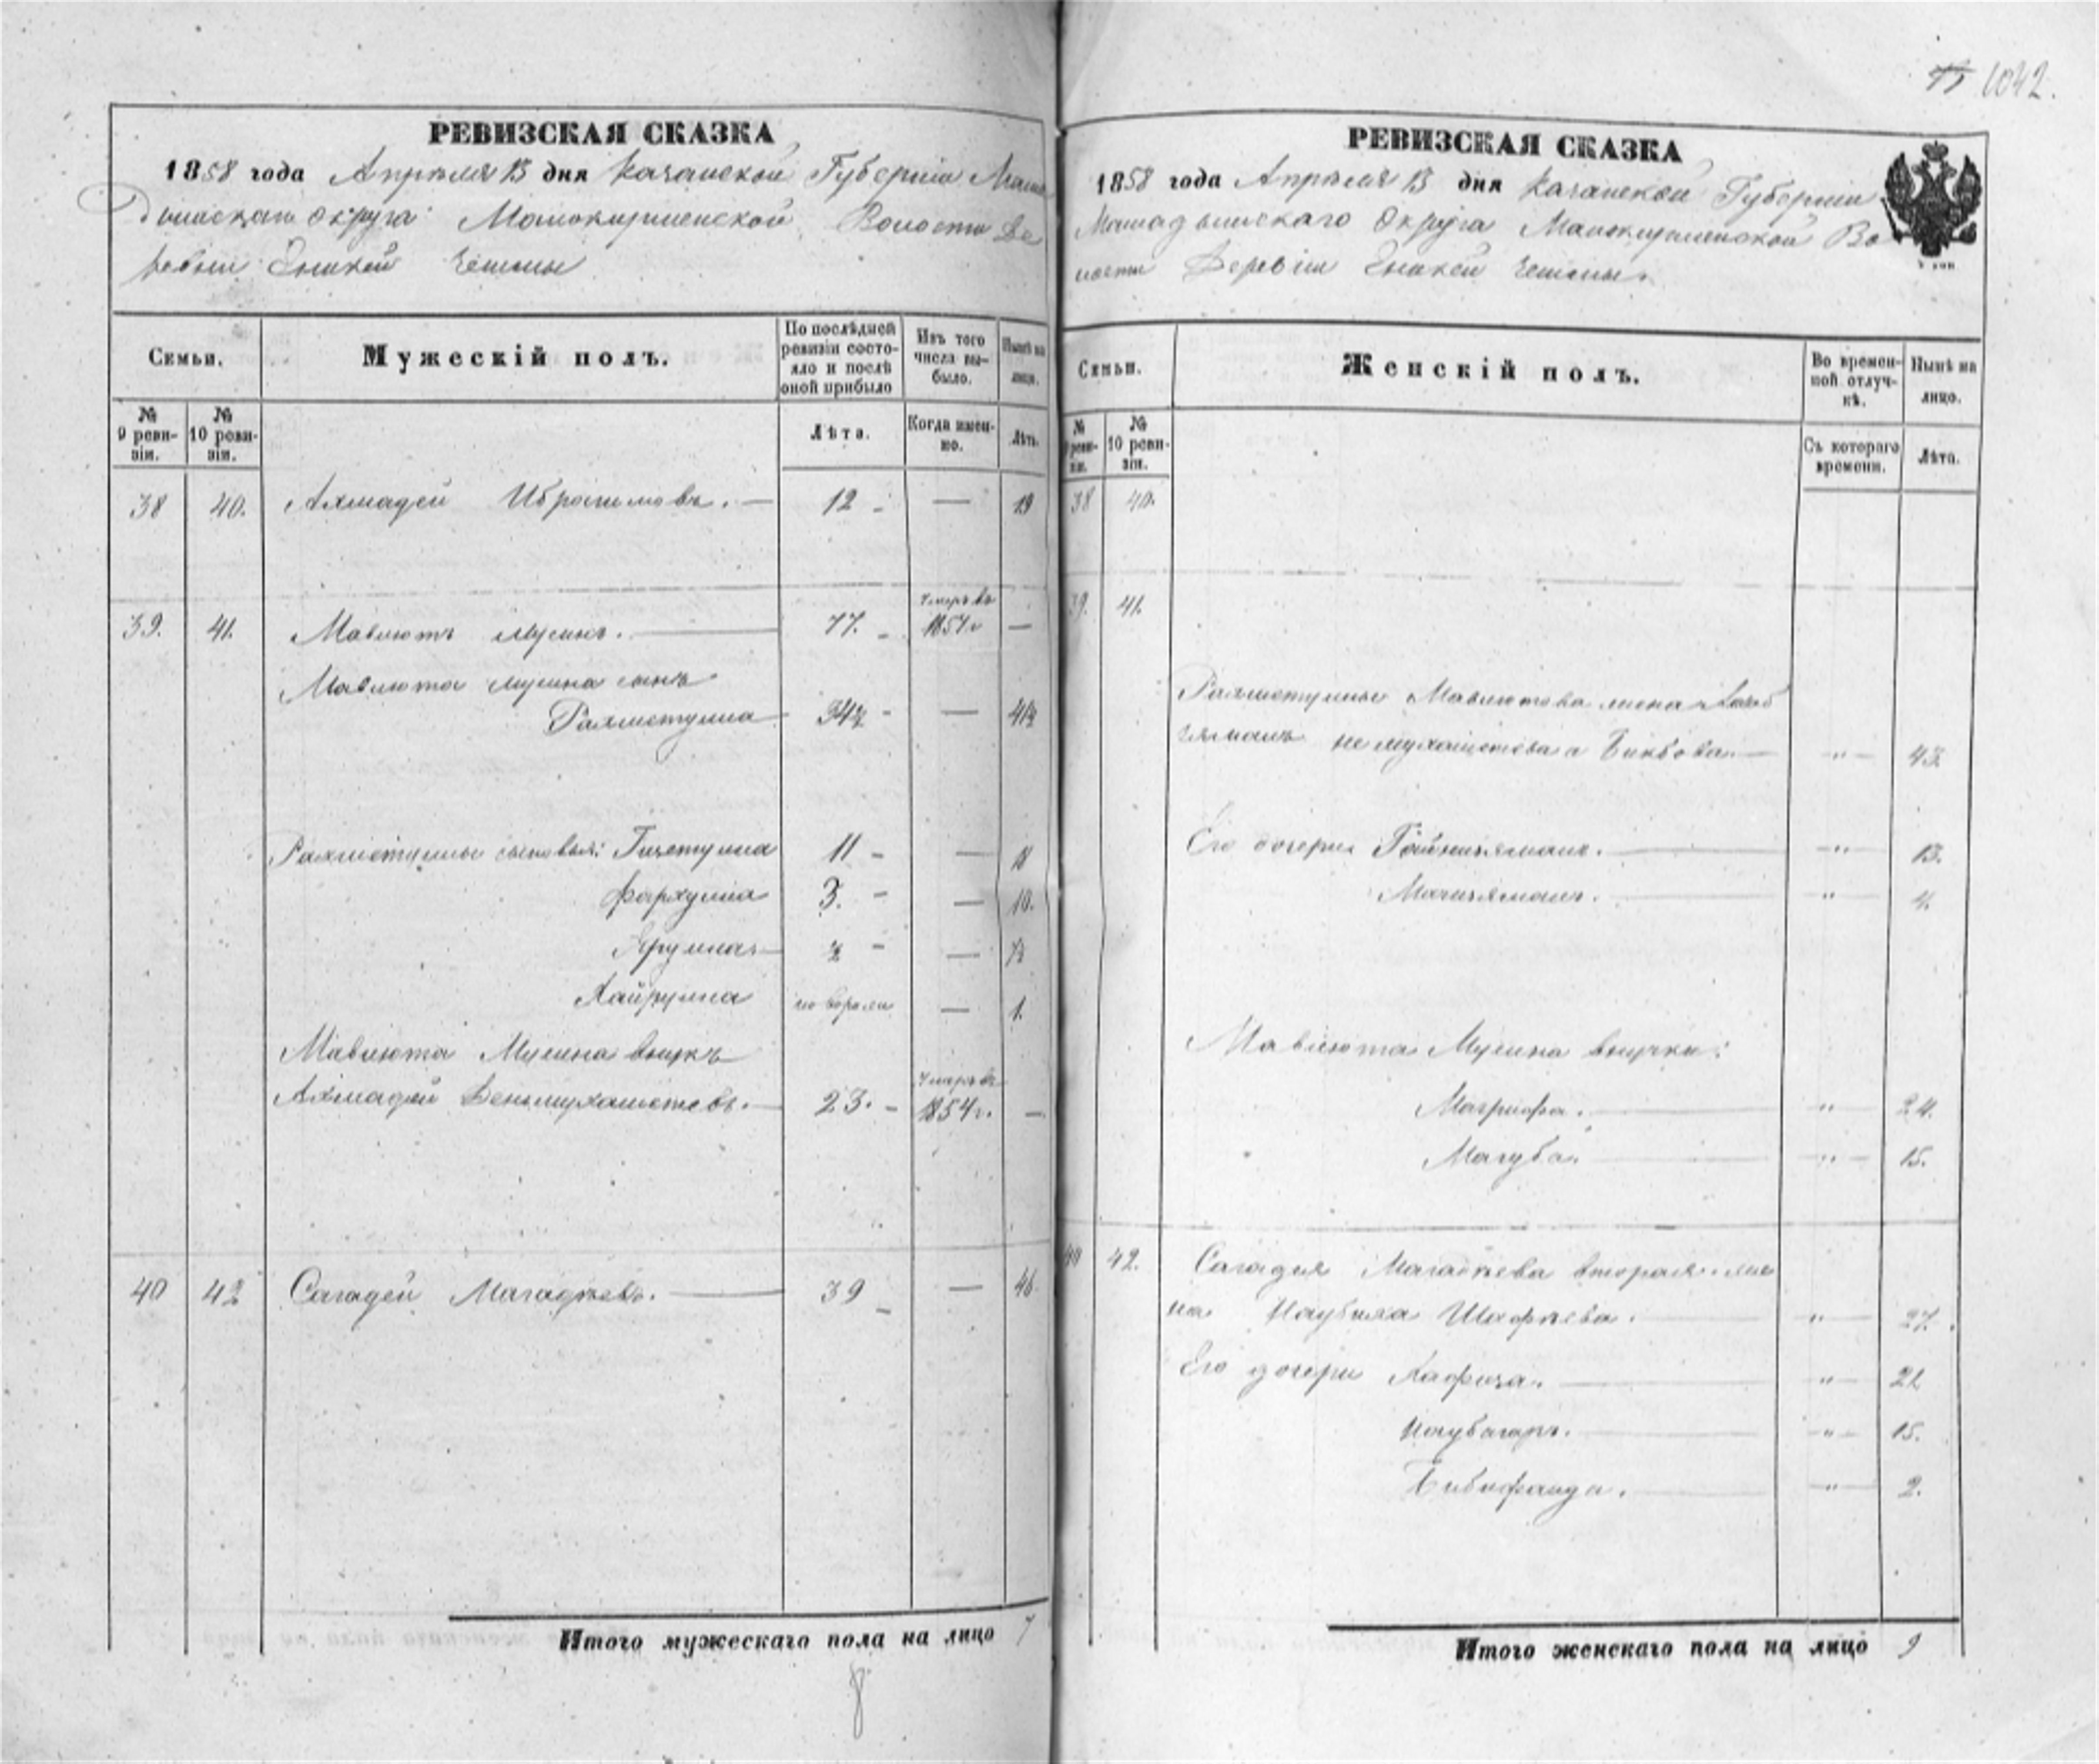 1042.
РЕВИЗСКАЯ СКАЗКА
1858 года Апреля 13 дня Казанской Губернии Мама
дышскаго округа Мамокирменской Волости Де
ревни Енакей Чешмы
Семьи. Мужескій полъ. По послѣдней ревизіи состояло и послѣ оной прибыло Изъ того числа выбыло. Нынѣ на лицо.
№ 9 ревизіи. № 10 ревизіи. Лѣта. Когда именно. Лѣта.
38 40. Ахмадей Ибрагимовъ. — 12 — 19
39. 41. Мавлютъ Мусинъ. — 77. умеръ въ 1857 г —
Мавлюта Мусина сынъ
Рахметулла 34½ — 41½
Рахметуллы сыновья: Гизетулла 11 — 18
Фархулла 3. — 10.
Ярулла — ½ — 7½
Хайрулла новорожд — 1.
Мавлюта Мусина внукъ
Ахмадей Денмухаметевъ. — 23. умеръ въ 1854 г. —
40 42 Сагадей Магадѣевъ. — 39 — 46
Итого мужескаго пола на лицо 7
8
РЕВИЗСКАЯ СКАЗКА
1858 года Апреля 13 дня Казанской Губернии
Мамадышскаго Округа Мамокирменской Во
лости Деревни Енакей Чешмы.
Семьи. Женскій полъ. Во временной отлучкѣ. Нынѣ на лицо.
№ 9 ревизіи. № 10 ревизіи. Съ котораго времени. Лѣта.
38 40.
39. 41.
Рахметуллы Мавлютова жена
не мухаметева а Бикбова. — „ — 43
Его дочери — „ — 13.
— „ — 4.
Мавлюта Мусина внучки:
Магрифа. — „ — 24.
Магуба. — „ — 15.
40 42. Сагадея Магадѣева вторая же
на Шафѣева. — „ — 27.
Его дочери Хафиза. — „ — 21
— „ — 15.
Бибифаида. — „ — 2.
Итого женскаго пола на лицо 9